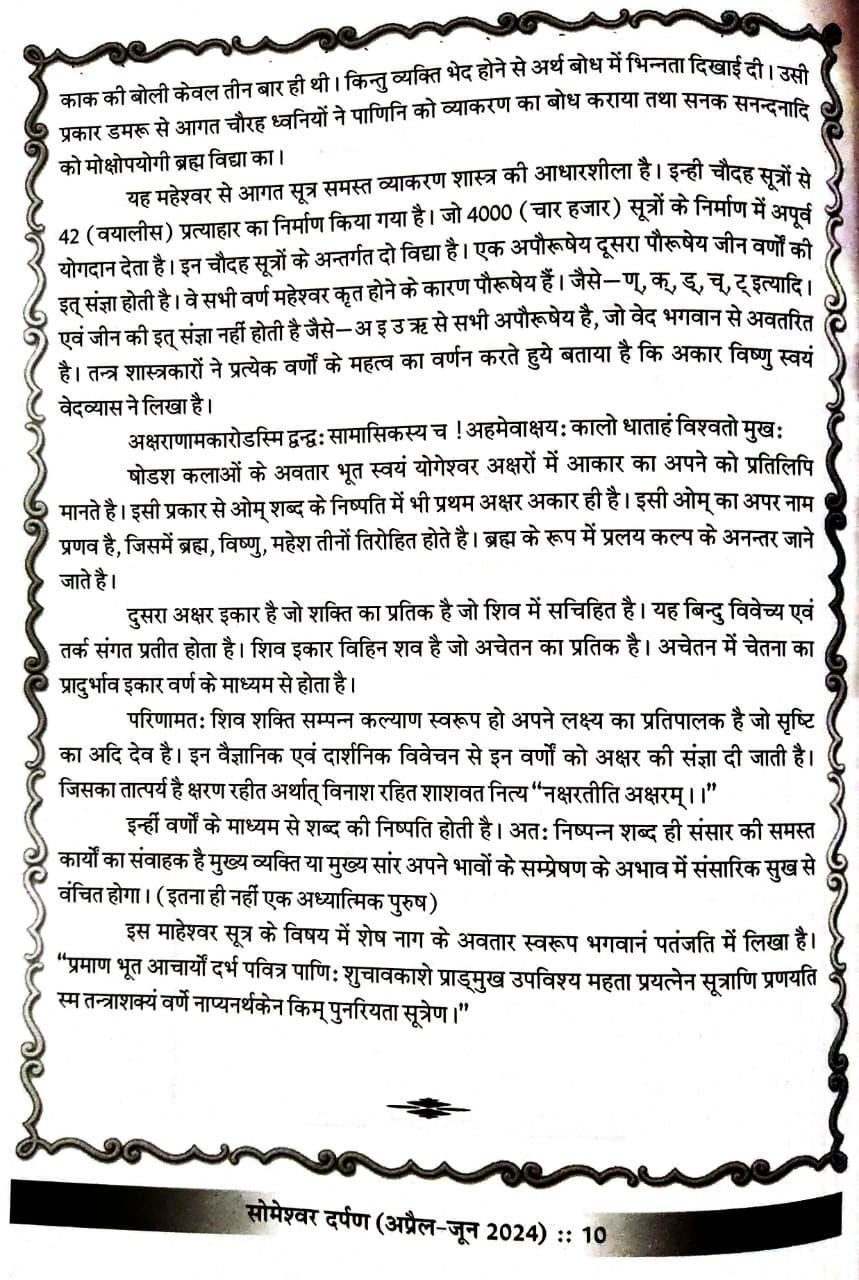 काक की बोली केवल तीन बार ही थी। किन्तु व्यक्ति भेद होने से अर्थ बोध में भिन्नता दिखाई दी। उसी
प्रकार डमरू से आगत चौरह ध्वनियों ने पाणिनि को व्याकरण का बोध कराया तथा सनक सनन्दनादि
को मोक्षोपयोगी ब्रह्म विद्या का।
यह महेश्वर से आगत सूत्र समस्त व्याकरण शास्त्र की आधारशीला है। इन्ही चौदह सूत्रों से
42 (वयालीस) प्रत्याहार का निर्माण किया गया है। जो 4000 (चार हजार) सूत्रों के निर्माण में अपूर्व
योगदान देता है। इन चौदह सूत्रों के अन्तर्गत दो विद्या है। एक अपौरूषेय दूसरा पौरूषेय जीन वर्णों की
इत् संज्ञा होती है। वे सभी वर्ण महेश्वर कृत होने के कारण पौरूषेय हैं। जैसे–ण्, क्, ड्, च्, ट् इत्यादि।
एवं जीन की इत् संज्ञा नहीं होती है जैसे–अ इ उ ऋ से सभी अपौरूषेय है, जो वेद भगवान से अवतरित
है। तन्त्र शास्त्रकारों ने प्रत्येक वर्णों के महत्व का वर्णन करते हुये बताया है कि अकार विष्णु स्वयं
वेदव्यास ने लिखा है।
अक्षराणामकारोडस्मि द्वन्द्व: सामासिकस्य च ! अहमेवाक्षय: कालो धाताहं विश्वतो मुख:
षोडश कलाओं के अवतार भूत स्वयं योगेश्वर अक्षरों में आकार का अपने को प्रतिलिपि
मानते है। इसी प्रकार से ओम् शब्द के निष्पति में भी प्रथम अक्षर अकार ही है। इसी ओम् का अपर नाम
प्रणव है, जिसमें ब्रह्म, विष्णु, महेश तीनों तिरोहित होते है। ब्रह्म के रूप में प्रलय कल्प के अनन्तर जाने
जाते है।
दुसरा अक्षर इकार है जो शक्ति का प्रतिक है जो शिव में सचिहित है। यह बिन्दु विवेच्य एवं
तर्क संगत प्रतीत होता है। शिव इकार विहिन शव है जो अचेतन का प्रतिक है। अचेतन में चेतना का
प्रादुर्भाव इकार वर्ण के माध्यम से होता है।
परिणामत: शिव शक्ति सम्पन्न कल्याण स्वरूप हो अपने लक्ष्य का प्रतिपालक है जो सृष्टि
का अदि देव है। इन वैज्ञानिक एवं दार्शनिक विवेचन से इन वर्णों को अक्षर की संज्ञा दी जाती है।
जिसका तात्पर्य है क्षरण रहीत अर्थात् विनाश रहित शाशवत नित्य “नक्षरतीति अक्षरम्।।”
इन्हीं वर्णों के माध्यम से शब्द की निष्पति होती है। अत: निष्पन्न शब्द ही संसार की समस्त
कार्यों का संवाहक है मुख्य व्यक्ति या मुख्य सांर अपने भावों के सम्प्रेषण के अभाव में संसारिक सुख से
वंचित होगा। (इतना ही नहीं एक अध्यात्मिक पुरुष)
इस माहेश्वर सूत्र के विषय में शेष नाग के अवतार स्वरूप भगवानं पतंजति में लिखा है।
“प्रमाण भूत आचार्यो दर्भ पवित्र पाणि: शुचावकाशे प्राड्मुख उपविश्य महता प्रयत्नेन सूत्राणि प्रणयति
स्म तन्त्राशक्यं वर्णे नाप्यनर्थकेन किम् पुनरियता सूत्रेण।”
सोमेश्वर दर्पण (अप्रैल–जून 2024) :: 10